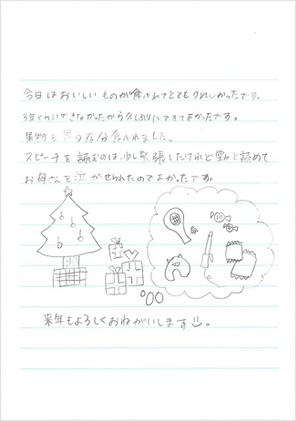 今日はおいしいものが食べれてとてもうれしかったです。
3年ぐらいできなかったから久しぶりにできてよかったです。
果物も 食べれました。
スピーチを読むのは少し緊張したけれど 読めて
お母さんを泣かせられたのでよかったです。
来年もよろしくおねがいします